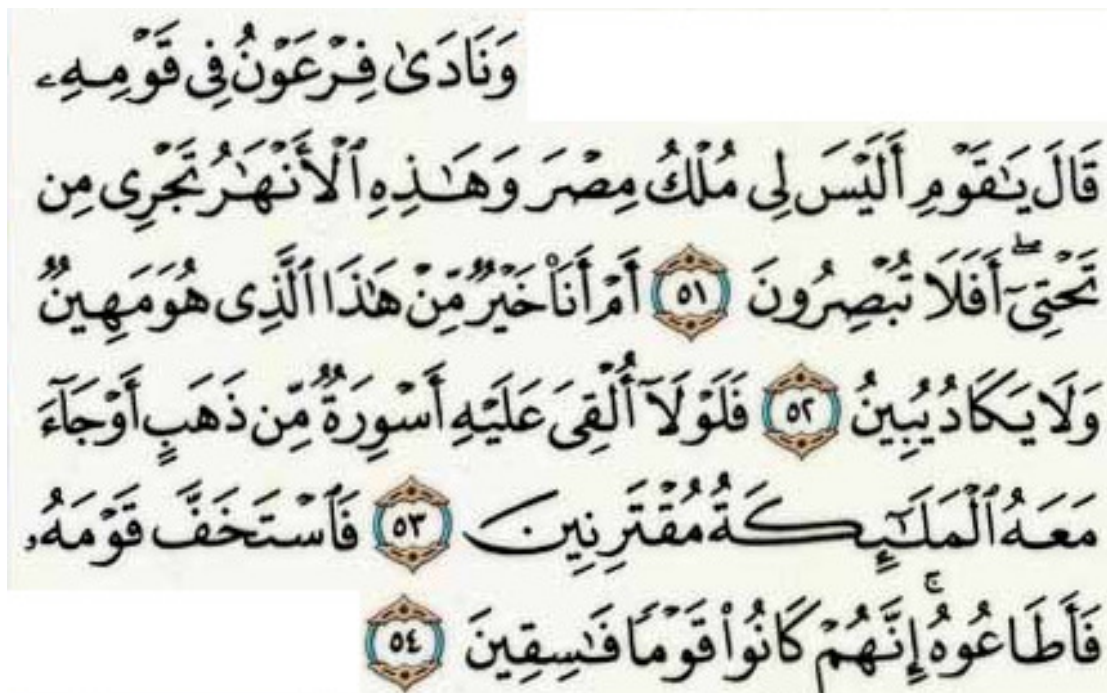 وَنَادَىٰ فِرْعَوْنُ فِى قَوْمِهِۦ
قَالَ يَـٰقَوْمِ أَلَيْسَ لِى مُلْكُ مِصْرَ وَهَـٰذِهِ ٱلْأَنْهَـٰرُ تَجْرِى مِن
تَحْتِىٓ ۖ أَفَلَا تُبْصِرُونَ ٥١ أَمْ أَنَا۠ خَيْرٌ مِّنْ هَـٰذَا ٱلَّذِى هُوَ مَهِينٌ
وَلَا يَكَادُ يُبِينُ ٥٢ فَلَوْلَآ أُلْقِىَ عَلَيْهِ أَسْوِرَةٌ مِّن ذَهَبٍ أَوْ جَآءَ
مَعَهُ ٱلْمَلَـٰٓئِكَةُ مُقْتَرِنِينَ ٥٣ فَٱسْتَخَفَّ قَوْمَهُۥ
فَأَطَاعُوهُ ۚ إِنَّهُمْ كَانُوا۟ قَوْمًا فَـٰسِقِينَ ٥٤